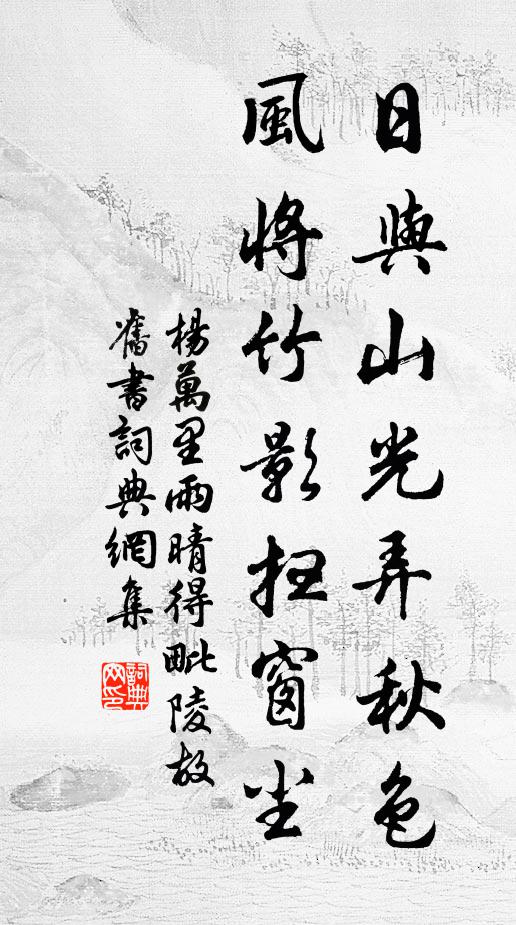 日與山光弄秋色
風將竹影扫窗尘
楊萬里雨晴得毗陵故
舊書詞典網集
詞典网印